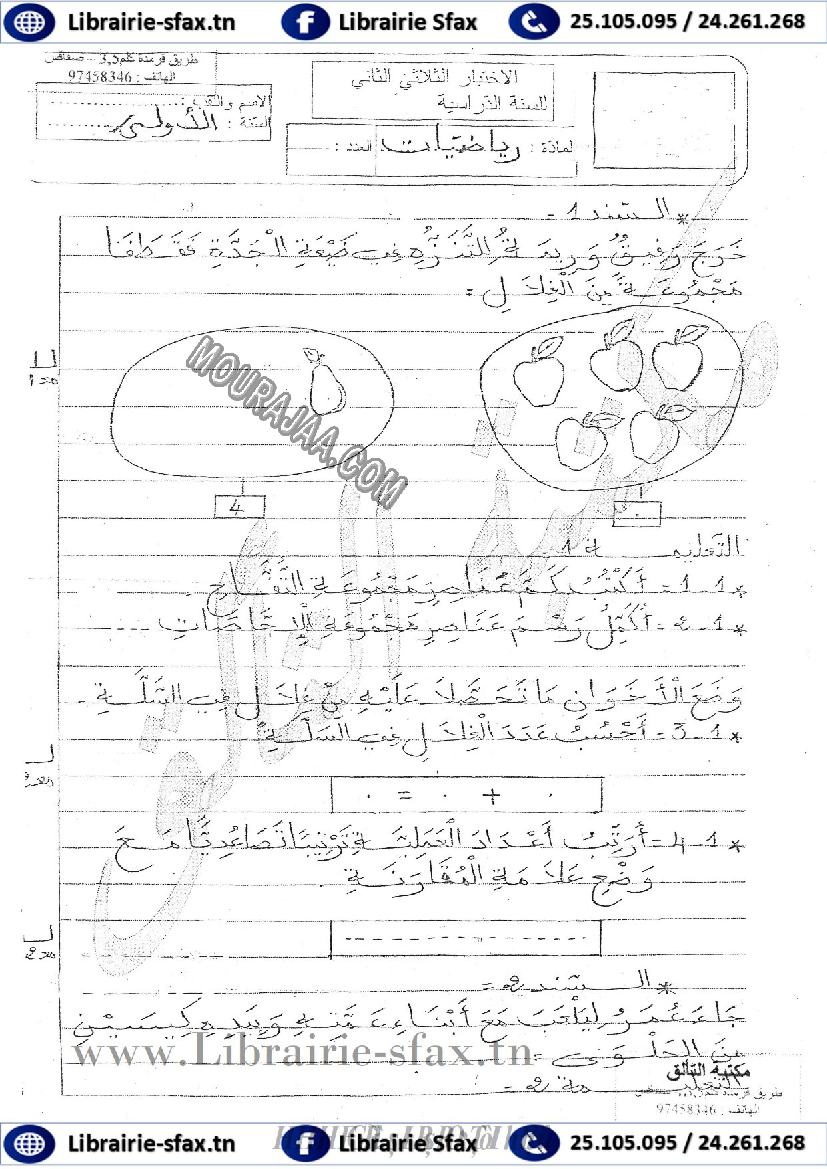 Librairie-sfax.tn Librairie Sfax 25.105.095 / 24.261.268
طريق قرمدة كلم3,5 - صفاقس
الهاتف : 97458346
الاختبار الثلاثي الثاني
للسنة الدراسية
الاسم واللقب :
السنة : الأولى
المادة : رياضيات العدد :
* السند 1 =
خَرَجَ رَفِيقٌ وَ رِيمَةُ لِلتَّنَزُّهِ فِي ضَيْعَةِ الْجَدَّةِ فَقَطَفَا
مَجْمُوعَةً مِنَ الْغِلَالِ =
MOURAJAA.COM
4
التعليمة 1
* 1-1 = أَكْتُبُ كَمَّ عَنَاصِرِ مَجْمُوعَةِ التُّفَّاحِ .
* 1-2 = أُكْمِلُ رَسْمَ عَنَاصِرِ مَجْمُوعَةِ الْإِجَّاصَاتِ ...
وَضَعَ الْأَخَوَانِ مَا تَحَصَّلَا عَلَيْهِ مِنْ غِلَالٍ فِي السَّلَّةِ .
* 1-3 = أَحْسُبُ عَدَدَ الْغِلَالِ فِي السَّلَّةِ
. + . = .
* 1-4 = أُرَتِّبُ أَعْدَادَ الْعَمَلِيَّةِ تَرْتِيبًا تَصَاعُدِيًّا مَعَ
وَضْعِ عَلَامَةِ الْمُقَارَنَةِ
* السند 2 =
جَاءَ عُمَرُ لِيَلْعَبَ مَعَ أَبْنَاءِ عَمَّتِهِ وَ بِيَدِهِ كِيسَيْنِ
مِنَ الْحَلْوَى =
www.Librairie-sfax.tn
مكتبة التألق
التعليمة 2 =
طريق قرمدة كلم3,5 صفاقس
الهاتف : 97458346
Librairie-sfax.tn Librairie Sfax 25.105.095 / 24.261.268